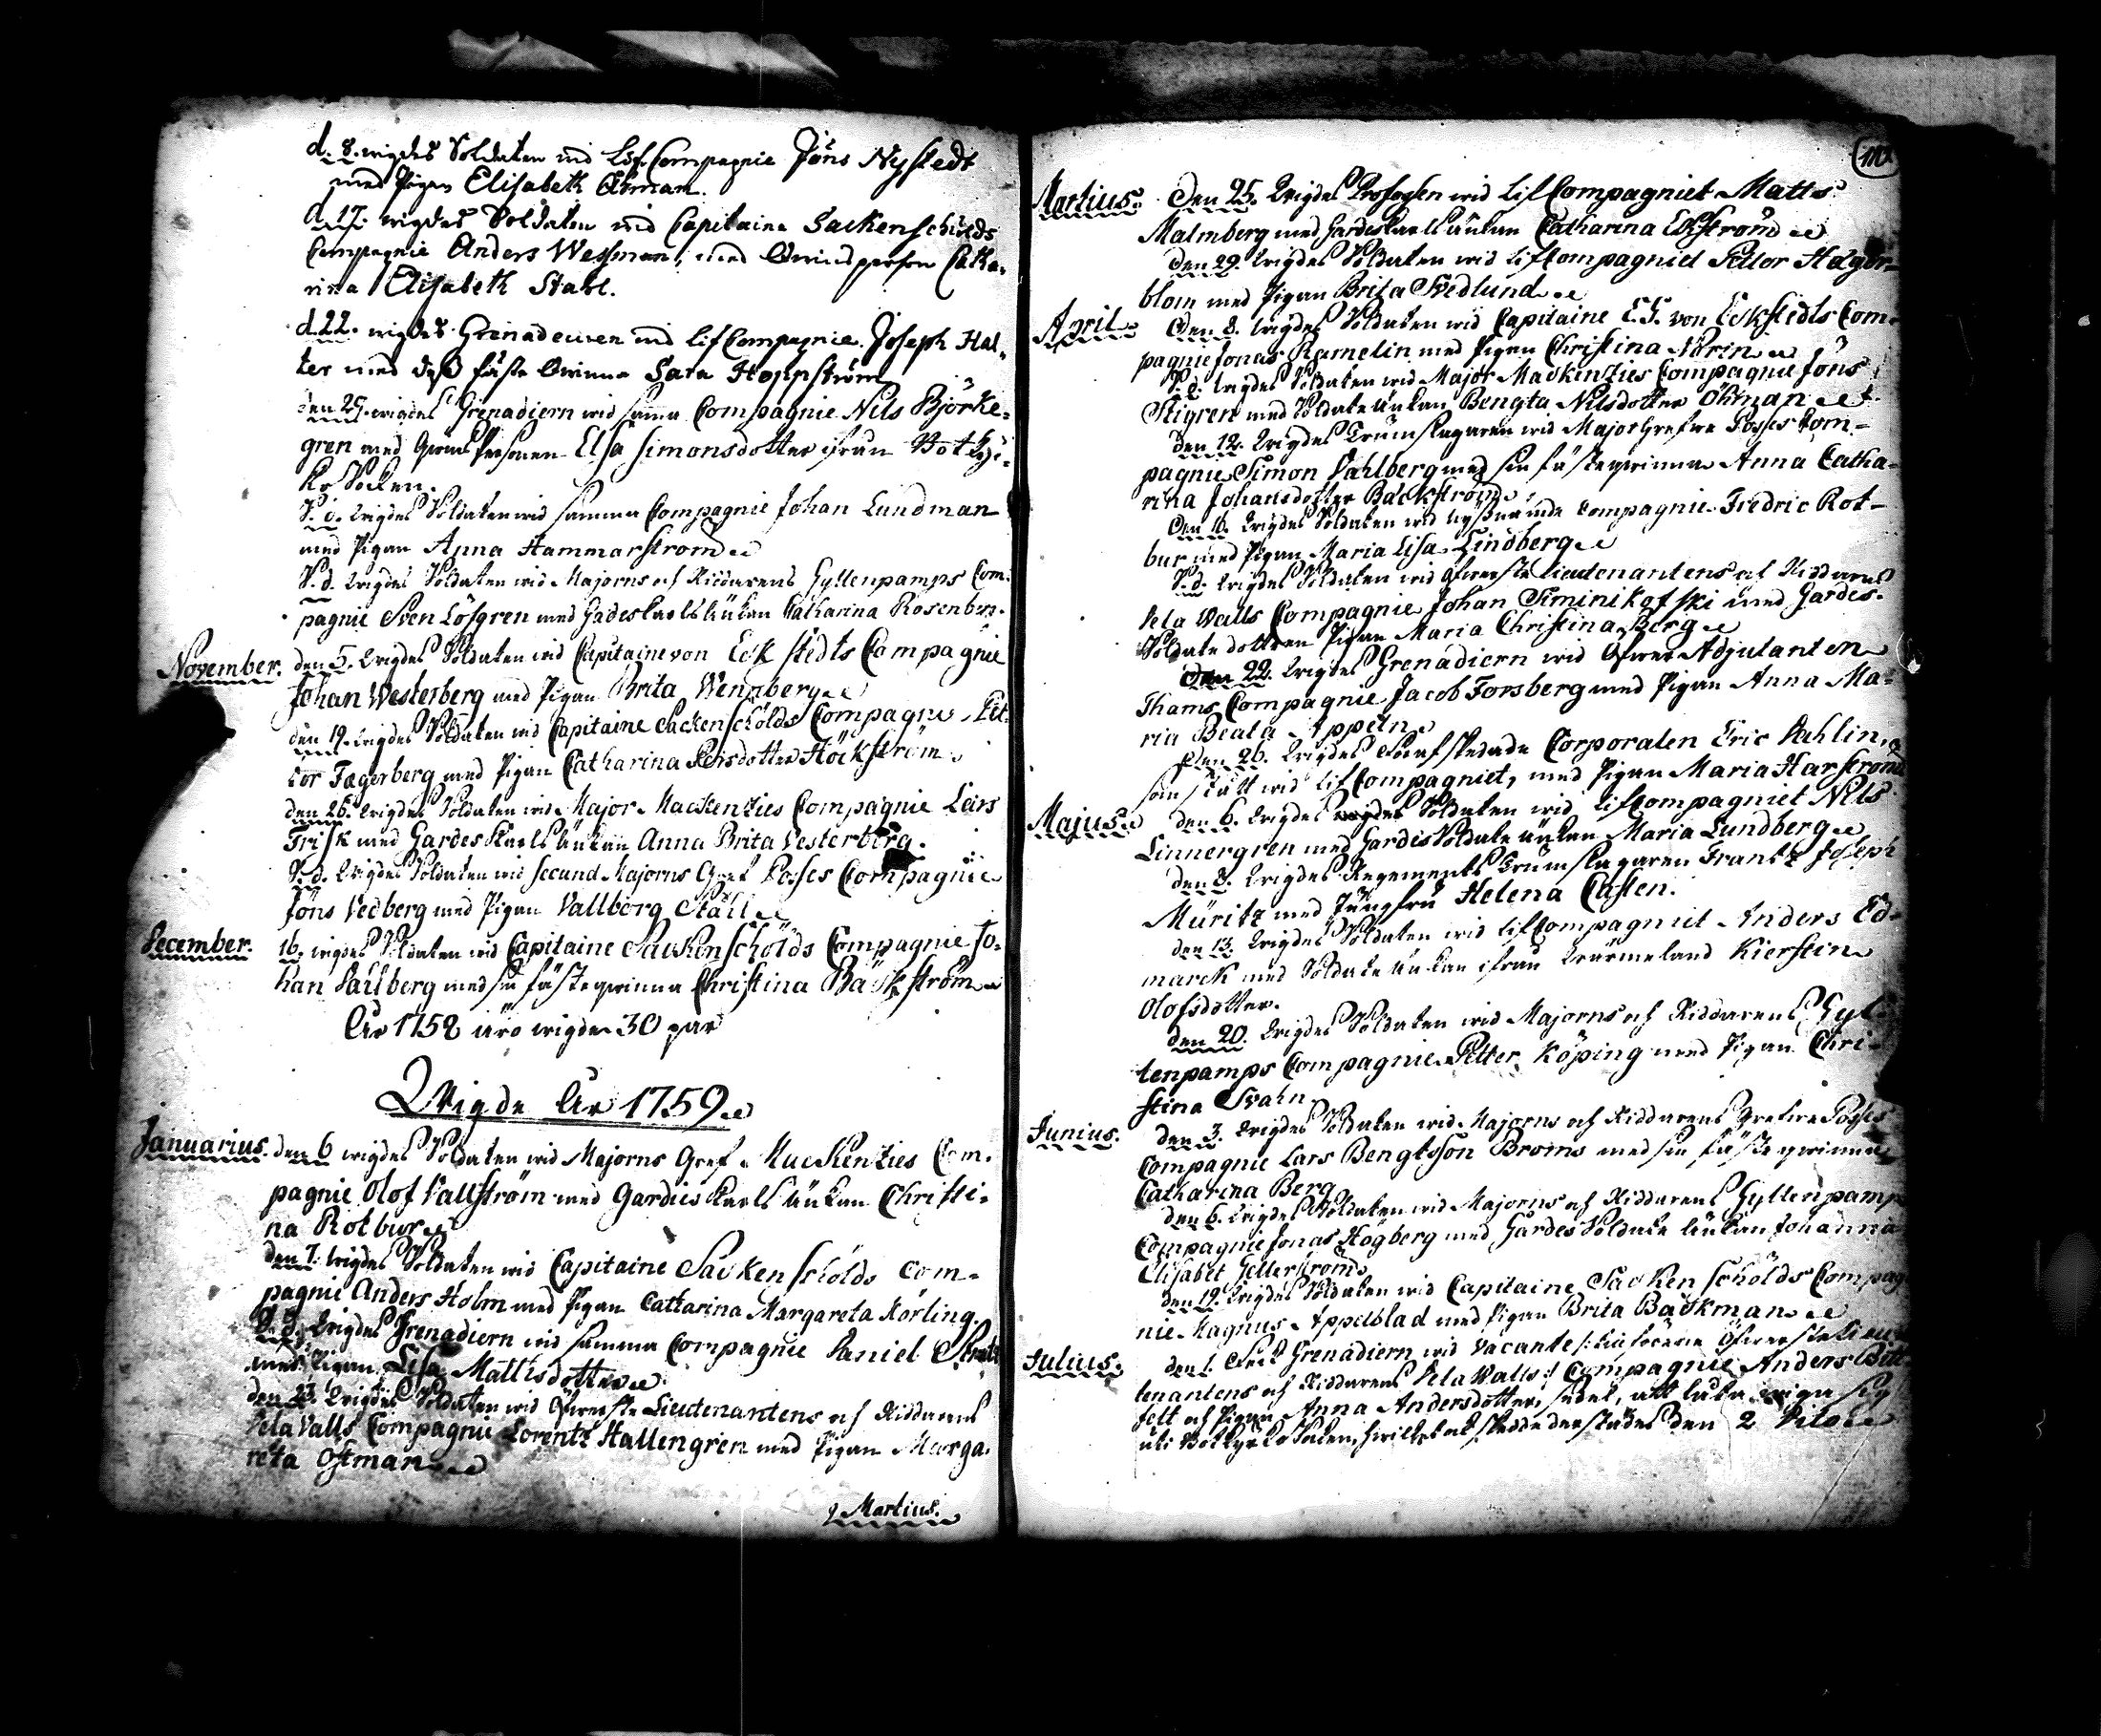 d. 8. wigdes Soldaten wid Lif. Compagnie Jöns Nystedt
med Pigan Elisabeth Öhman.
d. 17. wigdes Soldaten wid Capitaine Sackenschiölds
Compagnie Anders Wessman, med Qwinsperson Catha-
rina Elisabeth Stahl.
d. 22. wigdes Grenadeuren wid Lif Compagnie Joseph Hal-
ter med dess fäste Qwinna Sara Hoppström
den 29. wigdes Grenadiern wid samma Compagnie Nils Björke-
gren med Qwins Personen Elsa Simonsdotter ifrån Botky-
rko Socken.
S. d. wigdes Soldaten wid samma Compagnie Johan Lundman
med Pigan Anna Hammarström
S. d. wigdes Soldaten wid Majorns och Riddarens Gyllenpamps Com-
pagnie Sven Löfgren med Gardeskarls Änkan Catharina Rosenbm.
November. den 5. wigdes Soldaten wid Capitaine von Eckstedts Compagnie
Johan Westerberg med Pigan Brita Wennberg
den 19. wigdes Soldaten wid Capitaine Sackenschölds Compagnie Pet-
ter Fagerberg med Pigan Catharina Persdotter Höckström
den 26. wigdes Soldaten wid Major Mackenzies Compagnie Lars
Frisk med Gardes Karls Änkan Anna Brita Vesterberg.
S. d. wigdes Soldaten wid Secund Majorns Gref Posses Compagnie
Jöns Vedberg med Pigan Vallborg Ståll
December. 16. wigdes Soldaten wid Capitaine Sackenschölds Compagnie Jo-
han Dahlberg med sin fästeqwinna Christina Bäckström
År 1758 äro wigde 30 par
Wigde År 1759
Januarius. den 6 wigdes Soldaten wid Majorns Gref Mackenzies Com-
pagnie Olof Vallström med Gardies Karls Änkan Christi-
na Rotbur
den 7. wigdes Soldaten wid Capitaine Sackenschölds Com-
pagnie Anders Holm med Pigan Catharina Margareta Körling.
S. d. wigdes Grenadiern wid samma Compagnie Daniel
med Pigan Lisa Mattisdotter
den 23. wigdes Soldaten wid Öfwerste Lieutenantens och Riddarens
Dela Valls Compagnie Lorentz Hallengren med Pigan Marga-
reta Östman
Martius.
Martius. Den 25. wigdes Profossen wid Lif Compagniet Matts
Malmberg med Gardeskarls Änkan Catharina Ekström
den 29. wigdes Soldaten wid Lif Compagniet Petter Häger-
blom med Pigan Brita Svedlund
April. Den 8. wigdes Soldaten wid Capitaine E. G. von Eckstedts Com-
pagnie Jonas Ramelin med Pigan Christina Norin
S. d. wigdes Soldaten wid Major Mackenzies Compagnie Jöns
Stigren med Soldate Änkan Bengta Nilsdotter Öhman
den 12. wigdes Trumslagaren wid Major Grefwe Posses Com-
pagnie Simon Dahlberg med sin fästeqwinna Anna Catha-
rina Johansdotter Bäckström
Den 16. wigdes Soldaten wid nyssnemde Compagnie Fredric Rot-
bur med Pigan Maria Lisa Lindberg
S. d. wigdes Soldaten wid Öfwerste Lieutenantens och Riddarens
Dela Valls Compagnie Johan Siminikofski med Gardes-
Soldate dottren Pigan Maria Christina Berg
Den 22. wigdes Grenadiern wid Öfwer Adjutanten
Thams Compagnie Jacob Forsberg med Pigan Anna Ma-
ria Beata Appeln
Den 26. wigdes Corporalen Eric Dahlin,
som stått wid Lif Compagniet, med Pigan Maria Harström
Majus. den 6. wigdes Soldaten wid Lif Compagniet Nils
Linnergren med Gardes Soldate Änkan Maria Lundberg
den 8. wigdes Regements Trumslagaren Frantz Joseph
Müritz med Jungfru Helena Casten.
den 13. wigdes Soldaten wid Lif Compagniet Anders Ed-
marck med Soldate Änkan ifrån Wärmeland Kierstin
Olofsdotter.
den 20. wigdes Soldaten wid Majorns och Riddarens Gyl-
lenpamps Compagnie Petter Köping med Pigan Chri-
stina Svahn
Junius. den 3. wigdes Soldaten wid Majorns och Riddarens Grefwe Posses
Compagnie Lars Bengtsson Broms med sin fästeqwinna
Catharina Berg
den 6. wigdes Soldaten wid Majorns och Riddarens Gyllenpamps
Compagnie Jonas Högberg med Gardes Soldate Änkan Johanna
Elisabet Gellerström
den 19. wigdes Soldaten wid Capitaine Sackenschölds Compag-
nie Magnus Appelblad med Pigan Brita Bäckman
Julius. den 1. Grenadiern wid Vacante Öfwerste Lieu-
tenantens och Riddarens Dela Valls Compagnie Anders Bit-
felt och Pigan Anna Andersdotter sedel, att låta wiga sig
uti Botkyrko Socken, hwilket ock skedde derstädes den 2 dito